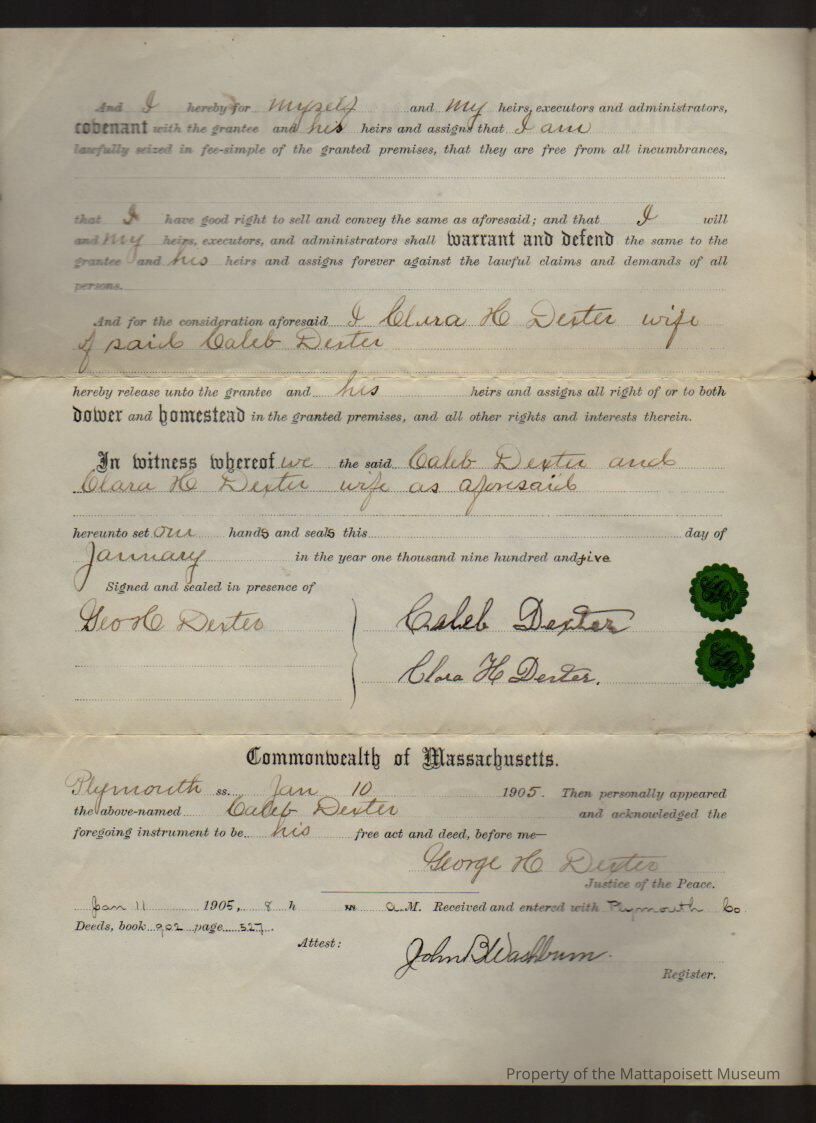 And I hereby for myself and my heirs, executors and administrators,
covenant with the grantee and his heirs and assigns that I am
lawfully seized in fee-simple of the granted premises, that they are free from all incumbrances,
that I have good right to sell and convey the same as aforesaid; and that I will
and my heirs, executors, and administrators shall warrant and defend the same to the
grantee and his heirs and assigns forever against the lawful claims and demands of all
persons.
And for the consideration aforesaid I Clara H Dexter wife
of said Caleb Dexter
hereby release unto the grantee and his heirs and assigns all right of or to both
dower and homestead in the granted premises, and all other rights and interests therein.
In witness whereof we the said Caleb Dexter and
Clara H Dexter wife as aforesaid
hereunto set our hands and seals this day of
January in the year one thousand nine hundred and five
Signed and sealed in presence of
Geo H Dexter
Caleb Dexter
Clara H Dexter.
Commonwealth of Massachusetts.
Plymouth ss. Jan 10 1905. Then personally appeared
the above-named Caleb Dexter and acknowledged the
foregoing instrument to be his free act and deed, before me—
George H Dexter
Justice of the Peace.
Jan 11 1905, 8 h m a.M. Received and entered with Plymouth Co
Deeds, book 902 page 327.
Attest:
John B Washburn.
Register.
Property of the Mattapoisett Museum